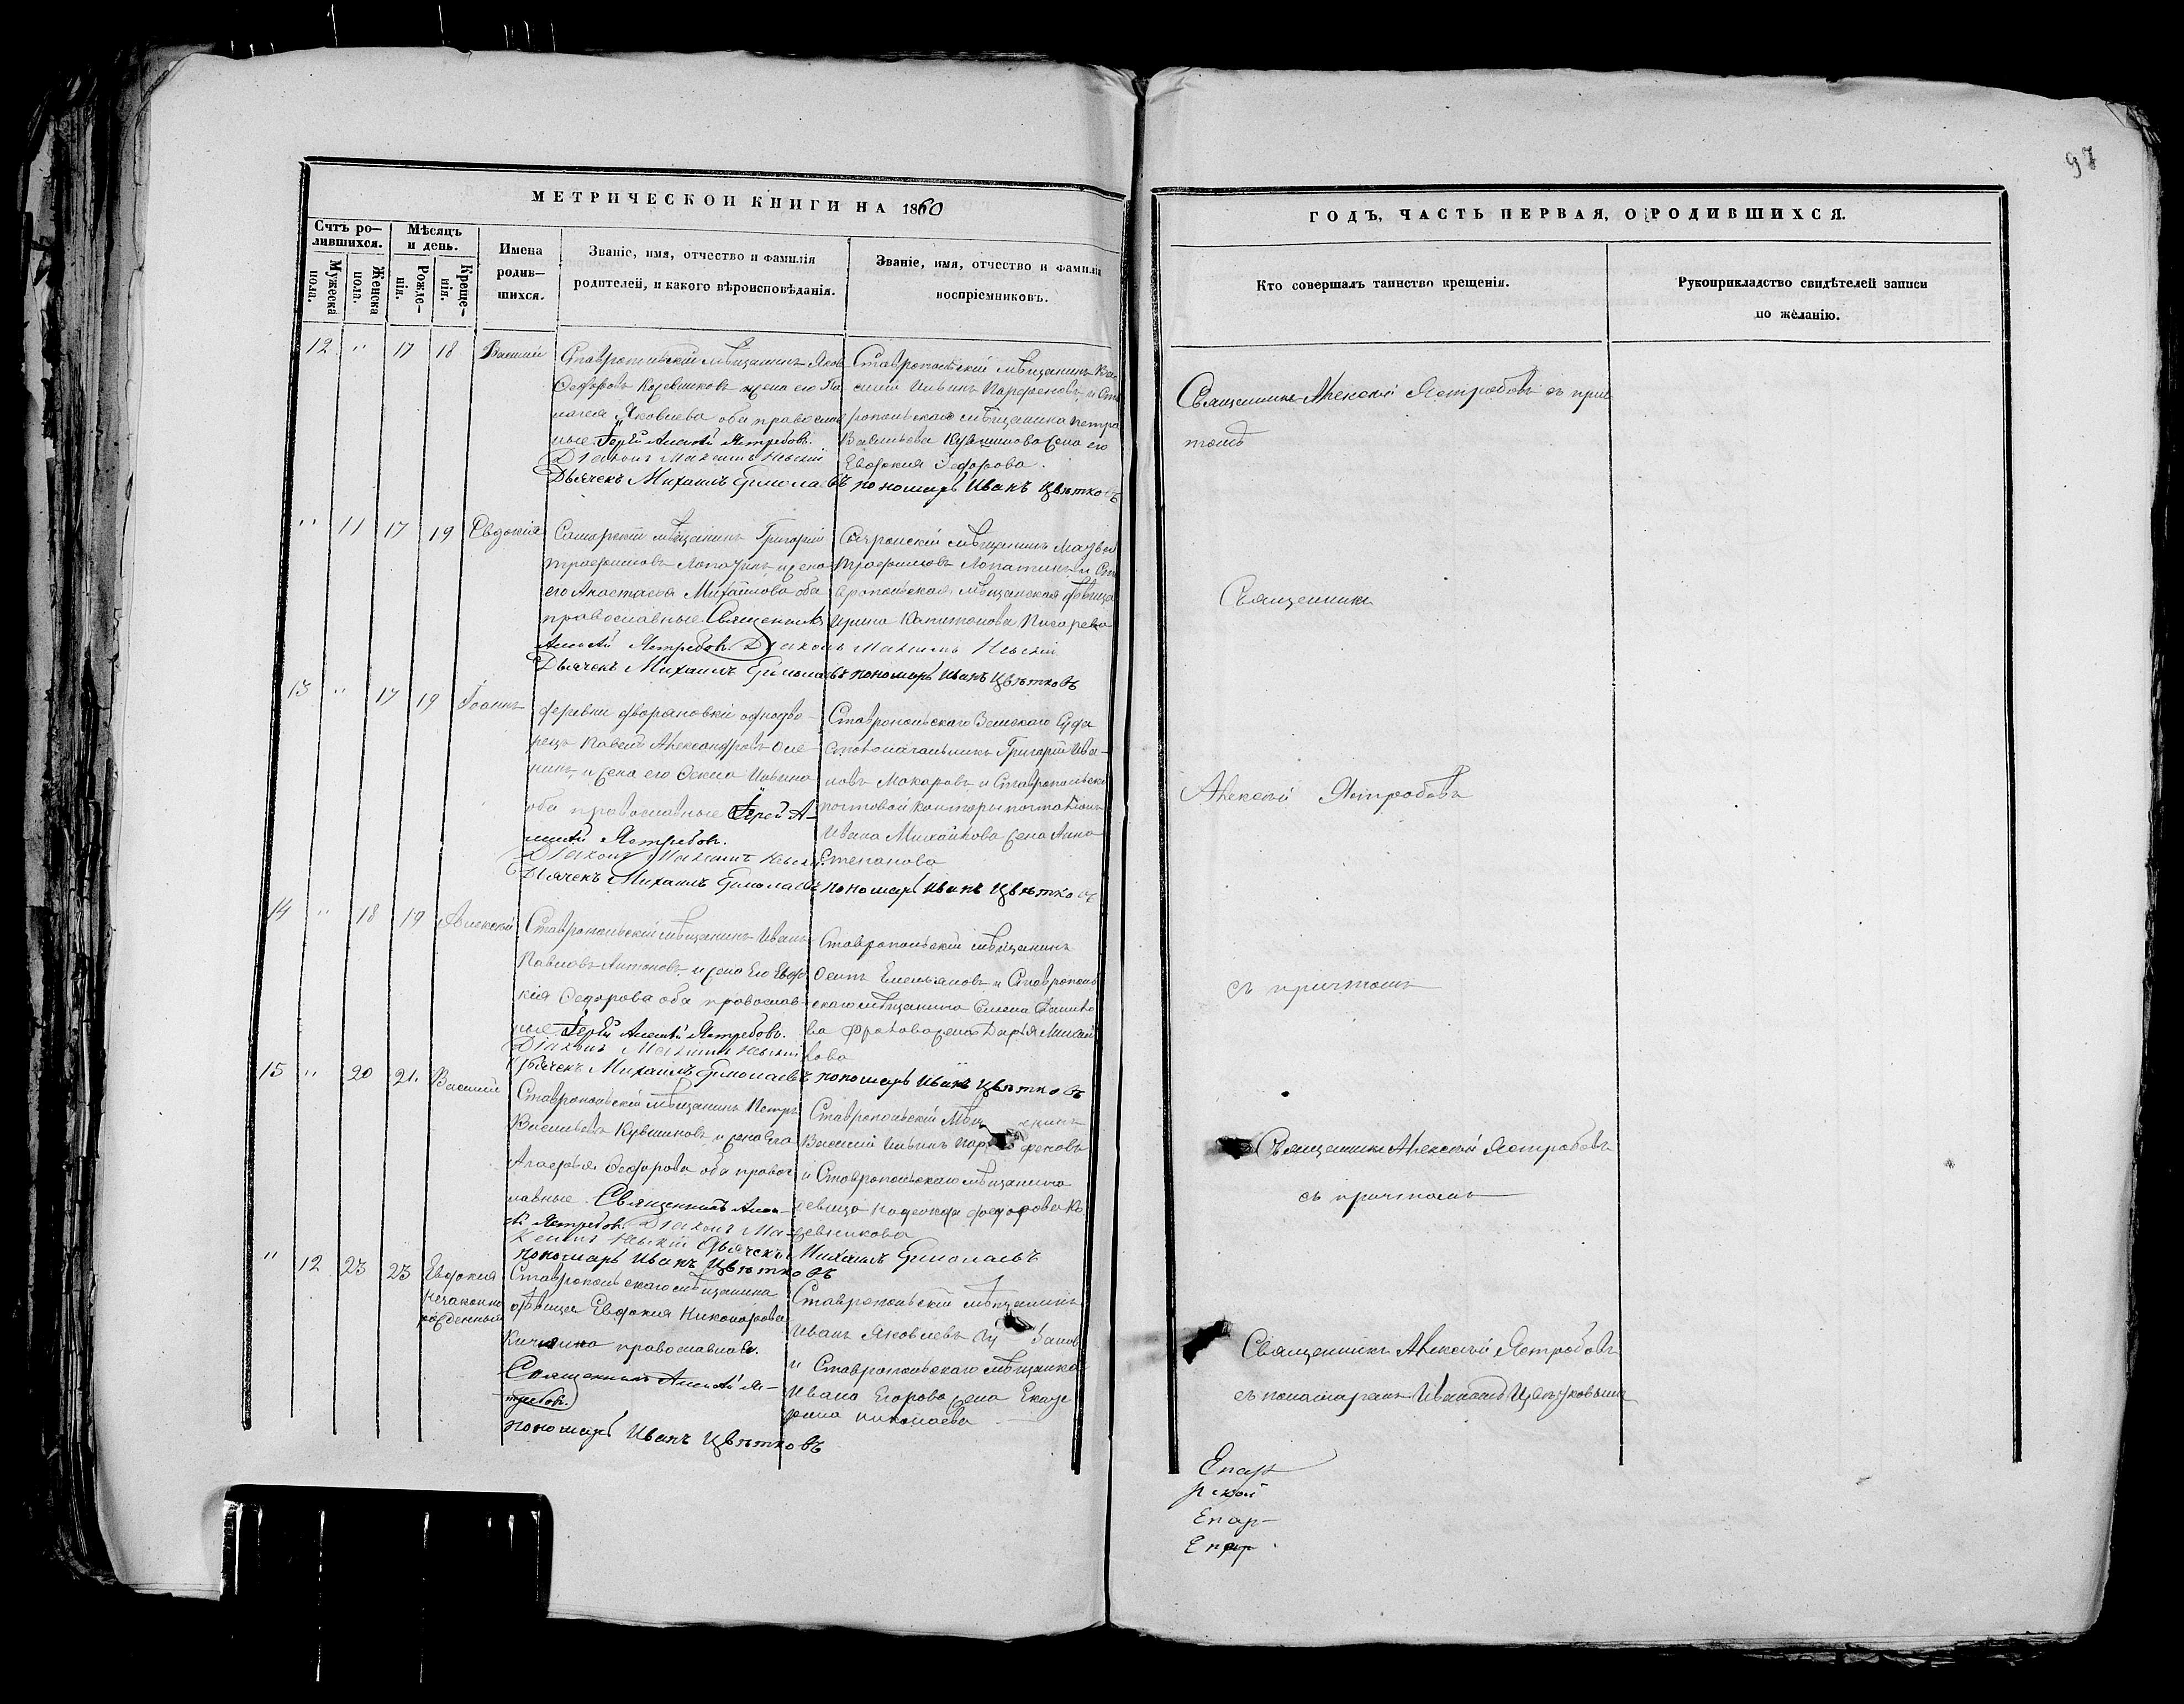 97
МЕТРИЧЕСКОЙ КНИГИ НА 1860
ГОДЪ, ЧАСТЬ ПЕРВАЯ, О РОДИВШИХСЯ.
Счтъ ро–
лившихся.
Мужеска
пола.
Женска
пола.
Мѣсяцъ
и день.
Рожде–
нія.
Креще–
нія.
Имена
родив–
шихся.
Званіе, имя, отчество и фамилія
родителей, и какого вѣроисповѣданія.
Званіе, имя, отчество и фамилія
воспріемниковъ.
Кто совершалъ таинство крещенія.
Рукоприкладство свидѣтелей записи
по желанію.
12 " 17 18 Василій
Ставропольскій мѣщанинъ Яков
Федоровъ Кожевниковъ жена его Пе
лагея Яковлева оба православ
ные. Іерей Алексѣй Ястребовъ.
Діаконъ Максимъ Невскій
Дьячекъ Михаилъ Ермолаевъ пономарь Иванъ Цвѣтковъ
Ставропольскій мѣщанинъ Ва
силій Ильинъ Парфеновъ и Став
ропольскаго мѣщанина Петра
Васильева Кувшинова жена его
Евдокия Федорова.
Священникъ Алексѣй Ястребовъ съ прич
томъ
" 11 17 19 Евдокія
Самарскій мѣщанинъ Григорій
Трофимовъ Лопатинъ и жена
его Анастасья Михайлова оба
православные. Священникъ
Алексѣй Ястребовъ. Діаконъ Максимъ Невскій
Дьячекъ Михаилъ Ермолаевъ пономарь Иванъ Цвѣтковъ
мѣщанинъ
Трофимовъ Лопатинъ и Ста
вропольская мѣщанская дѣвица
Ирина Капитонова Писарева
Священникъ
13 " 17 19 Іоаннъ
Деревни Дворяновки однодво–
рецъ Павелъ Александровъ
и жена его Ильина
оба православные Іерей А–
лексѣй Ястребовъ.
Діаконъ Максимъ Невскій
Дьячекъ Михаилъ Ермолаевъ пономарь Иванъ Цвѣтковъ
Ставропольскаго Земскаго Суда
Столоначальникъ Григорій Ива–
новъ Макаровъ и Ставропольской
почтовой конторы почталіона
Ивана Михайлова жена Анна
Степанова
Алексѣй Ястребовъ
14 " 18 19 Алексѣй
Ставропольскій мѣщанинъ Иванъ
Павловъ Антоновъ и жена Его Евдо
кія Федорова оба православ
ные. Іерей Алексѣй Ястребовъ.
Діаконъ Максимъ Невскій
Дьячекъ Михаилъ Ермолаевъ пономарь Иванъ Цвѣтковъ
Ставропольскій мѣщанинъ
Осипъ Емельяновъ и Ставрополь
скаго мѣщанина
жена Дарья Михай
лова
съ причтомъ
15 " 20 21. Василій
Ставропольскій мѣщанинъ Петръ
Васильевъ Кувшиновъ и жена Его
Агафья Федорова оба правос
лавные. Священникъ Алек–
ѣй Ястребовъ. Діаконъ Ма–
ксимъ Невскій Дьячекъ Михаилъ Ермолаевъ
пономарь Иванъ Цвѣтковъ
Ставропольскій Мѣщ анинъ
Василій Ильинъ Пар феновъ
и Ставропольскаго мѣщанина
девица Надежда Федорова Ко
жевникова
Священникъ Алексѣй Ястребовъ
съ причтомъ
" 12 23 23 Евдокия
незаконно
рожденный
Ставропольскаго мѣщанина
дѣвица Евдокия Никонорова
православная.
Священникъ Алексѣй Яс–
требовъ.
пономарь Иванъ Цвѣтковъ
Ставропольскій мѣщанинъ
Иванъ Яковлевъ
и Ставропольскаго мѣщанина
Ивана Егорова жена Екате
рина Николаева
Священникъ Алексѣй Ястребовъ
съ пономаремъ Иваномъ Цвѣтковымъ
Епар
Епар–
Епар